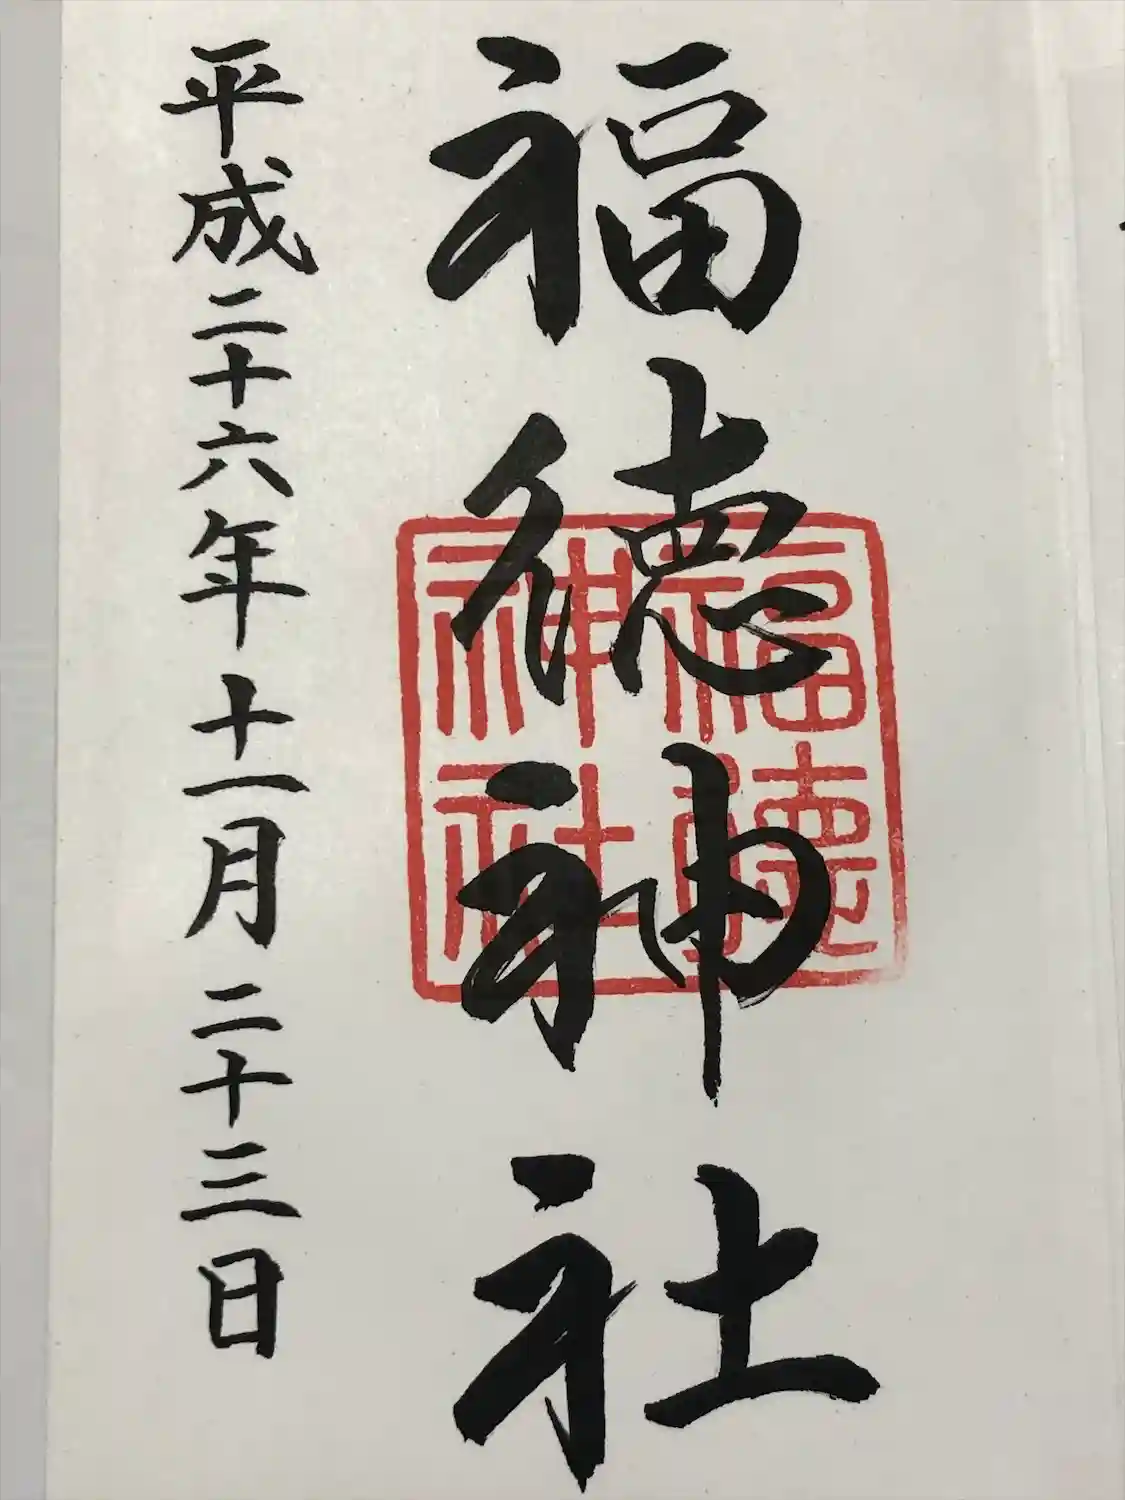 福徳神社
福徳神社
平成二十六年十一月二十三日